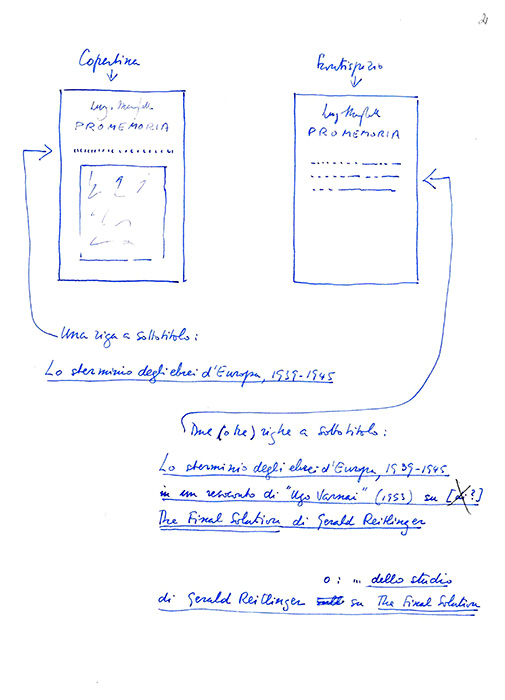 2
Copertina
Frontispizio
Luigi Meneghello
PROMEMORIA
Luigi Meneghello
PROMEMORIA
Una riga a sottotitolo:
Lo sterminio degli ebrei d'Europa, 1939-1945
Due (o tre) righe a sottotitolo:
Lo sterminio degli ebrei d'Europa, 1939-1945
in un resoconto di "Ugo Varnai" (1953) su [di?]
The Final Solution di Gerald Reitlinger
o: ... dello studio
di Gerald Reitlinger su The Final Solution